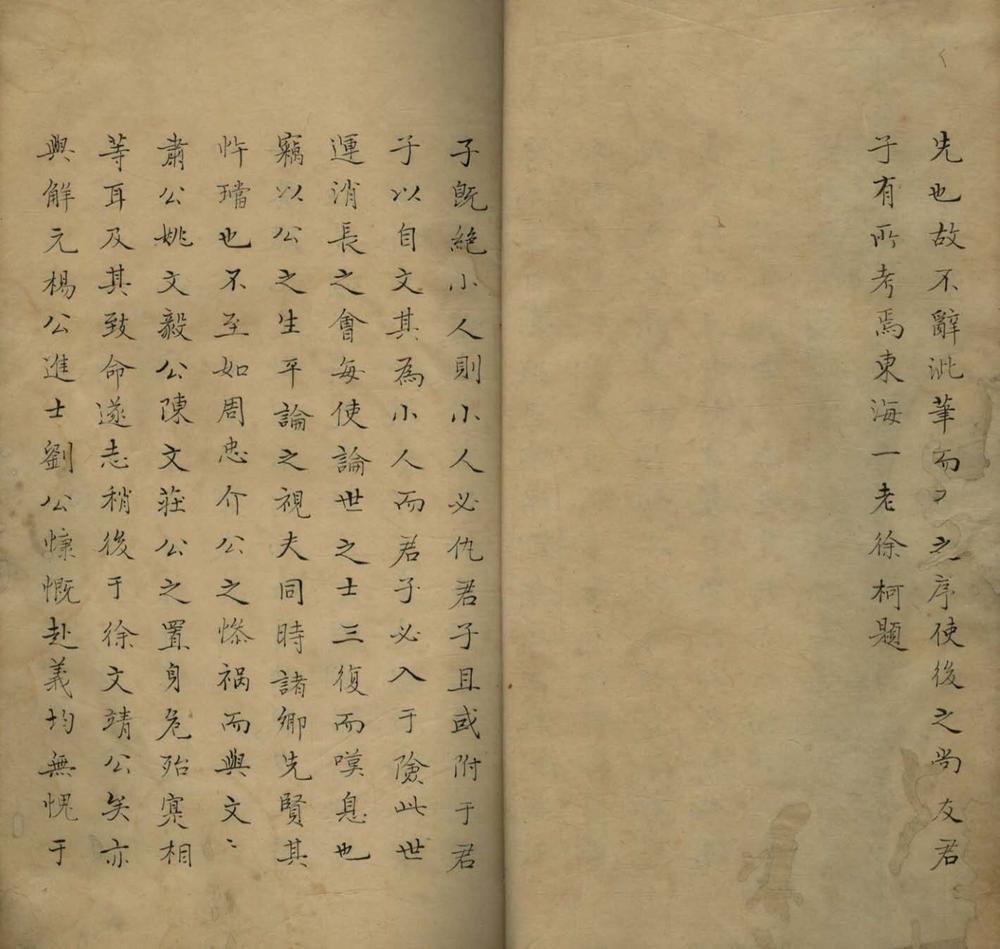 先也故不辭泚筆而為之序使後之尚友君
子有所考焉東海一老徐柯題
子既絕小人則小人必仇君子且或附于君
子以自文其為小人而君子必入于險此世
運消長之會每使論世之士三復而嘆息也
竊以公之生平論之視夫同時諸鄉先賢其
忤璫也不至如周忠介公之慘禍而與文〻
肅公姚文毅公陳文莊公之置身危殆寔相
等耳及其致命遂志稍後于徐文靖公矣亦
與解元楊公進士劉公慷慨赴義均無愧于